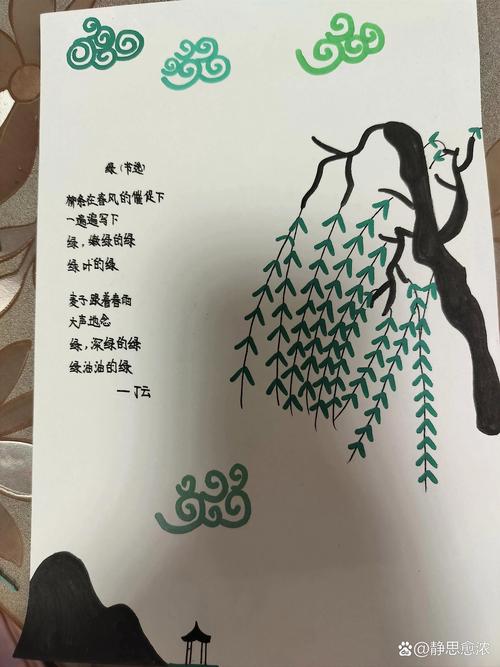 绿（节选）
柳条在春风的催促下
一遍遍写下
绿，嫩绿的绿
绿叶的绿
麦子跟着春雨
大声地念
绿，深绿的绿
绿油油的绿
——丁云
@静思愈浓